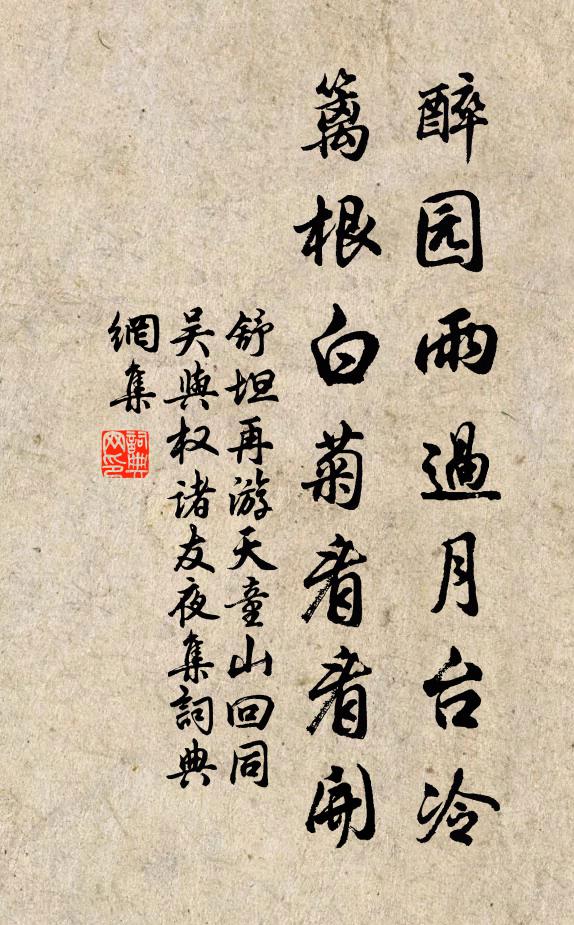 醉园雨過月台冷
籬根白菊看看開
舒坦再游天童山回同
吴與权诸友夜集詞典
網集
詞典
网印